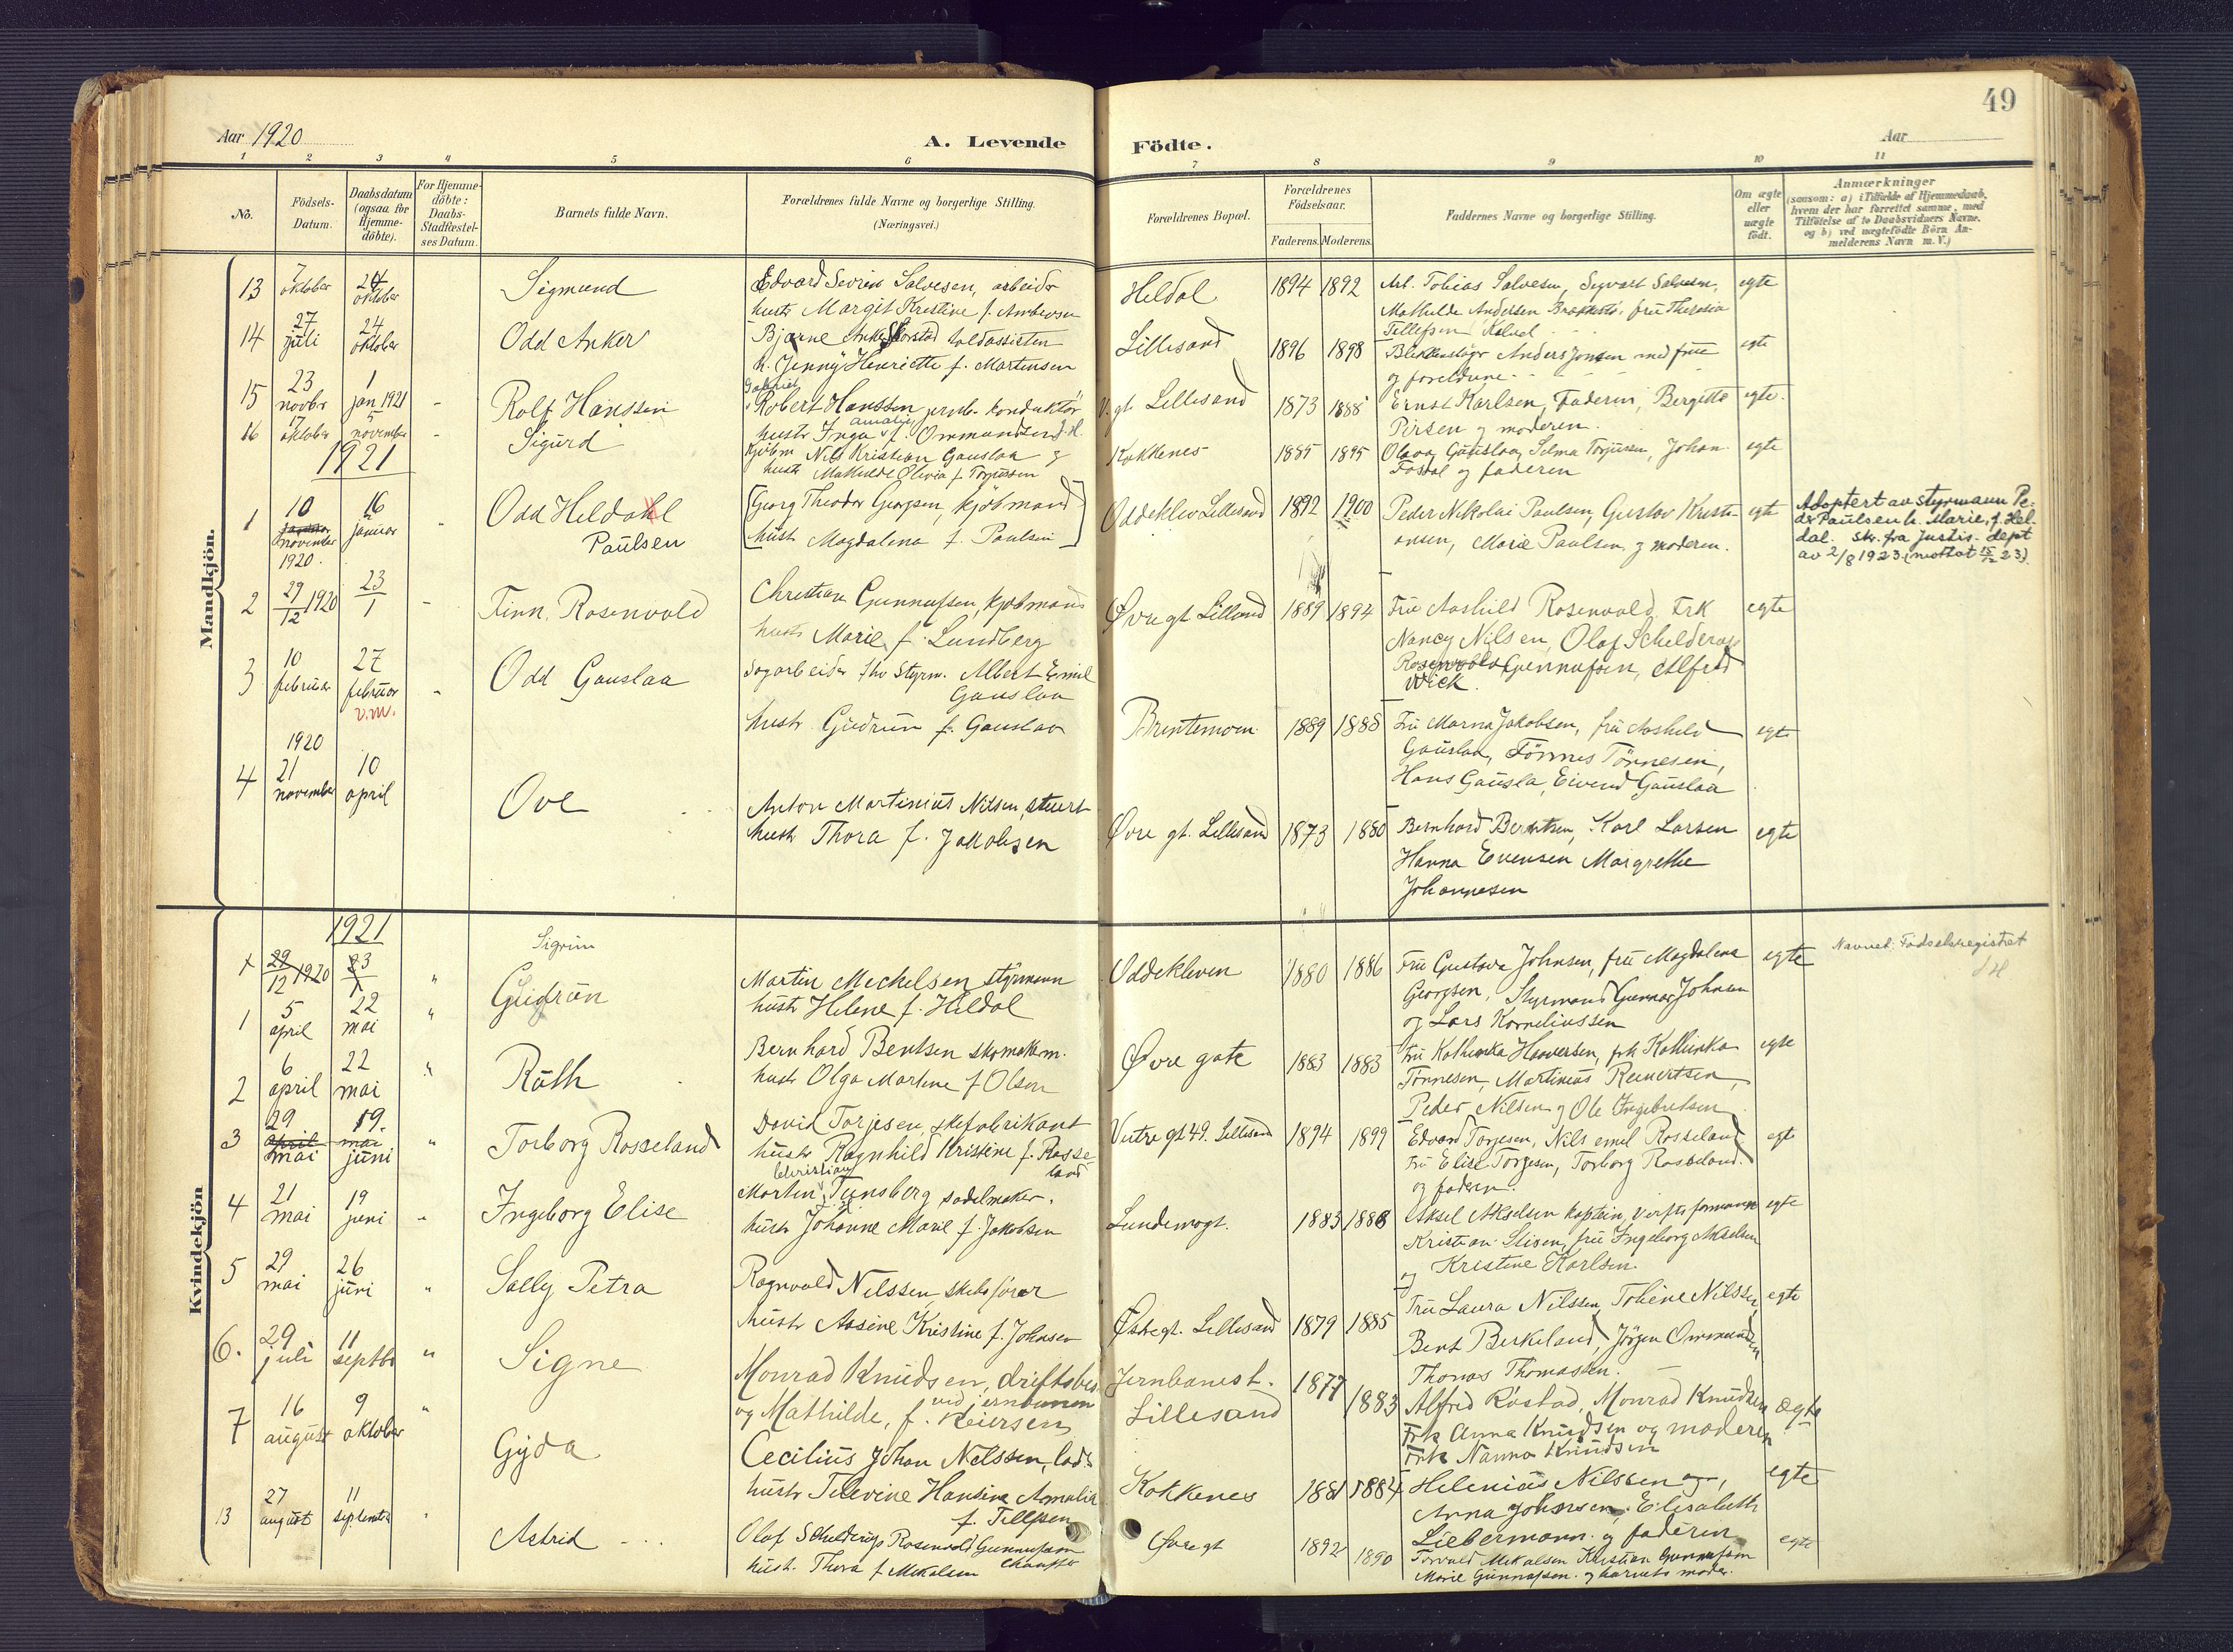 49
Aar 1920
A. Levende
Födte.
Aar
1 2 3 4 5 6 7 8 9 10 11
No.
Födsels-
Datum.
Daabsdatum
(ogsaa for
Hjemme-
döbte).
For Hjemme-
döbte:
Daabs-
Stadfæstel-
ses Datum.
Barnets fulde Navn.
Forældrenes fulde Navne og borgerlige Stilling.
(Næringsvei.)
Forældrenes Bopæl.
Forældrenes
Födselsaar.
Faderens. Moderens.
Faddernes Navne og borgerlige Stilling.
Om ægte
eller
uægte
födt.
Anmærkninger
(saasom: a) i Tilfælde af Hjemmedaab,
hvem der har forrettet samme, med
Tilföielse af to Daabsvidners Navne.
og b) ved uægtefödte Börn An-
melderens Navn m. V.)
Mandkjön.
13
7
oktober
24
oktober
Sigmund
Edvard Severin Salvesen, arbeider
hustr Margit Kristine f. Ambersen
Heldal
1894 1892
Arb. Tobias Salvesen, Sigvart Salvesen,
Mathilde Andersen Brækkestø, fru Theresia
Tellefsen Kalvel
egte
14
27
juli
24
oktober
Odd Anker
Bjarne Anker toldassistent
h. Jenny Henriette f. Martensen
Lillesand
1896 1898
Anders Jonsen med frue
og foreldrene
egte
15
23
novbr
1
jan 1921
-
Rolf Hanssen
Gabriel
Robert Hanssen jernb. konduktör
Amalie
hustr Inga f. Ommundsen J.H.
V. gt. Lillesand
1873 1888
Ernst Karlsen, Faderen, Bergitte
Pirsen og moderen.
egte.
16
17
oktober
5
november
-
Sigurd
Kjöbm Nils Kristian Gauslaa og
hustr Mathilde Olivia f. Torjussen
Kokkenes
1885 1895
Olava Gauslaa, Selma Torjussen, Johan
Fosdal og faderen
egte
1921
1
10
november
1920.
16
januar
Odd Heldahl
Paulsen
[Georg Theodor Georgsen, kjöbmand]
[hustr Magdalena f. Paulsen]
Oddeklev Lillesand
1892 1900
Peder Nikolai Paulsen, Gustav Kristi-
ansen, Marie Paulsen og moderen.
egte
Adoptert av styrmann Pe-
der Paulsen h. Marie, f. Hel-
dal. Skr. fra Justis-dept
av 2/8 1923 (mottat 15/12 23).
2
29/12 1920
23/1
-
Finn Rosenvold
Christian Gunnufsen, kjöbmand
hustr Marie f. Lundberg
Øvregt. Lillesand
1889 1894
Fru Aashild Rosenvold, Frk
Nancy Nilsen, Olaf Schelderup
Rosenvold Gunnufsen, Alfred
Wick.
egte
3
10
februar
27
februar
v.m.
-
Odd Gauslaa
Sagarbeider fhv Styrm. Albert Emil
Gauslaa
hustr Gudrun f. Gauslaa
Brentemoen
1889 1888
Fru Marna Jakobsen, fru Aashild
Gauslaa, Tönnes Tönnesen,
Hans Gausla, Eivend Gauslaa
egte
4
1920
21
november
10
april
Ove
Anton Martinius Nilsen, stuert
hustr Thora f. Jakobsen
Øvre gt. Lillesand
1873 1880
Bernhard Berntsen, Karl Larsen
Hanna Evensen Margrethe
Johannesen
egte
Kvindekjön
1921
29/12 1920
23/1
"
Sigrun
1
5
april
22
mai
"
Gudrun
Martin Mechelsen styrmann
hustr Helene f. Heldal
Oddekleven
1880 1886
Fru Gustava Johnsen, fru Magdalena
Georgsen, Styrmand Gunnar Johnsen
og Lars Korneliussen
egte
Navnet: Födselsregistret
2
6
april
22
mai
"
Ruth
Bernhard Bentsen skomakerm.
hustr Olga Martine f Olsen
Øvre gate
1883 1883
Fru Kathinka Haaversen, frk Kathinka
Tönnesen, Martinius Reinertsen,
Peder Nilsen og Ole Ingebretsen
egte
3
29
april
mai
19.
mai
juni
"
Torborg Rosseland
David Torjesen, skofabrikant
hustr Ragnhild Kristine f. Rosse-
land
Vestre gt 49. Lillesand
1894 1899
Edvard Torjesen, Nils emil Rosseland
Fru Elise Torjesen, Torborg Rosseland.
og faderen.
egte
4
21
mai
19
juni
Ingeborg Elise
Christian
Morten Tunsberg sadelmaker.
hustr Johanne Marie f. Jakobsen
Lundemogt.
1883 1888
Aksel Akselsen kaptein, Verftsformann
Kristian Elisen, fru Ingeborg Akselsen
og Kristine Karlsen.
egte
5
29
mai
26
juni
"
Sally Petra
Ragnvald Nilssen, skibsförer
hustr Assine Kristine f. Johnsen
Østregt. Lillesand
1879 1885
Fru Laura Nilssen, Tobine Nilssen,
Bent Birkeland, Jörgen Ommundsen
Thomas Thomassen.
egte
6.
29
juli
11
septbr
"
Signe
Monrad Knudsen, driftsbes
ved jernbanen
og Mathilde, f. Reiersen
Jernbanest.
Lillesand
1877 1883
Alfred Röstad, Monrad Knudsen
Frk Anna Knudsen og moderen
Frk Nanna Knudsen
ægte
7
16
august
9
oktober
"
Gyda
Cecilius Johan Nilssen, lods
hustr Televine Hansine Amalia
f. Tellefsen
Kokkenes
1881 1884
Helenius Nilssen og,
Anna Johnsen, Elisabeth
Liebermann. og faderen
egte
13
27
august
11
september
Astrid
Olaf Schelderup Rosenvold Gunnufsen
chauffør
hustr. Thora f Mekalsen
Øvregt
1892 1890
Torvald Mekalsen Kristian Gunnufsen
Marie Gunnufsen. og barnets moder.
egte